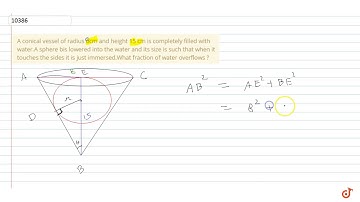 10386
A conical vessel of radius 8cm and height 15 cm is completely filled with
water.A sphere bis lowered into the water and its size is such that when it
touches the sides it is just immersed.What fraction of water overflows ?
A 8 E C
AB² = AE² + BE²
= 8²
r
D
15
θ
B